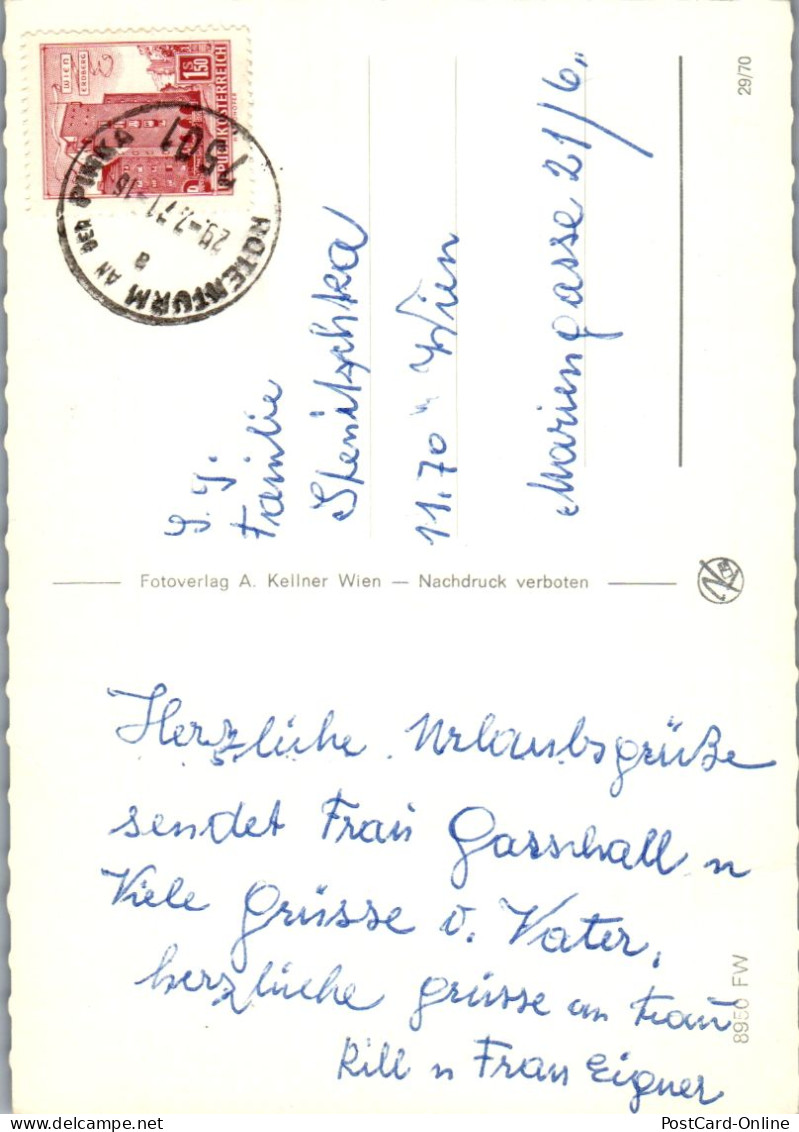 WIEN
ERDBERG
S 1.50
REPUBLIK ÖSTERREICH
ROTENTURM AN DER PINKA
7501
29.-7.71-16
a
Familie
1170 Wien
Mariengasse 21/6
29/70
Fotoverlag A. Kellner Wien — Nachdruck verboten
Herzliche Urlaubsgrüße
sendet Frau Gasschall u
Viele Grüsse v. Vater,
herzliche grüsse an Frau
Kill u Frau Eigner
8950 FW
PostCard-Online